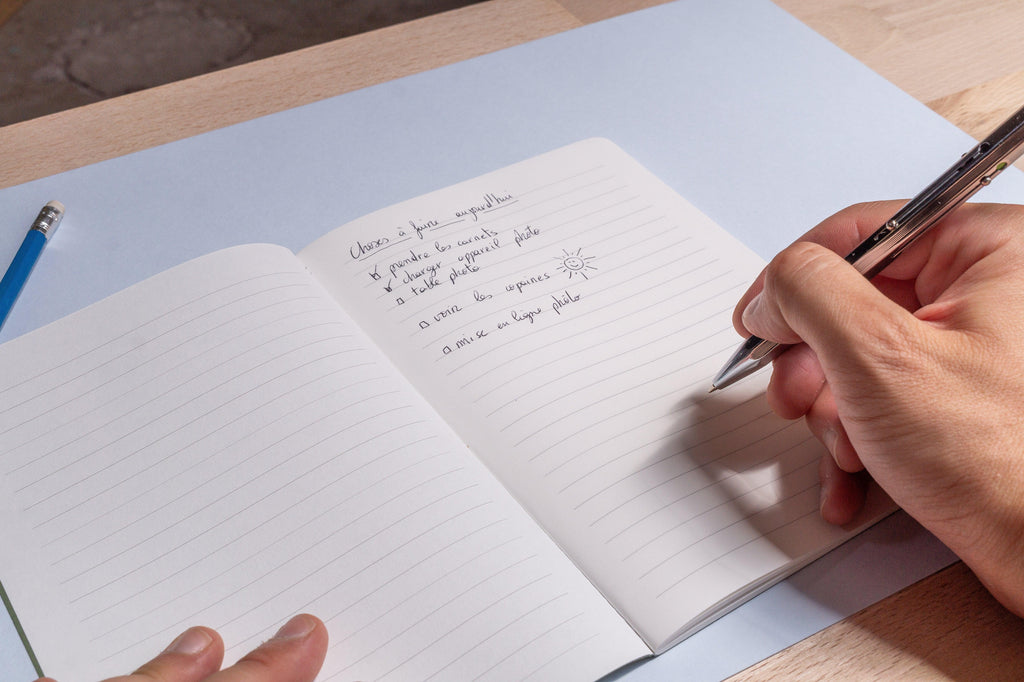 Choses à faire aujourd'hui
☑ prendre les carnets
☑ charger appareil photo
☐ table photo
☐ voir les copaines
☐ mise en ligne photo